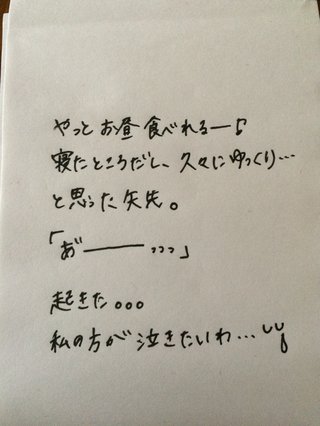 やっとお昼食べれるー♪
寝たところだし、久々にゆっくり…
と思った矢先。
「あ゛———ッッッ」
起きた。。。
私の方が泣きたいわ…